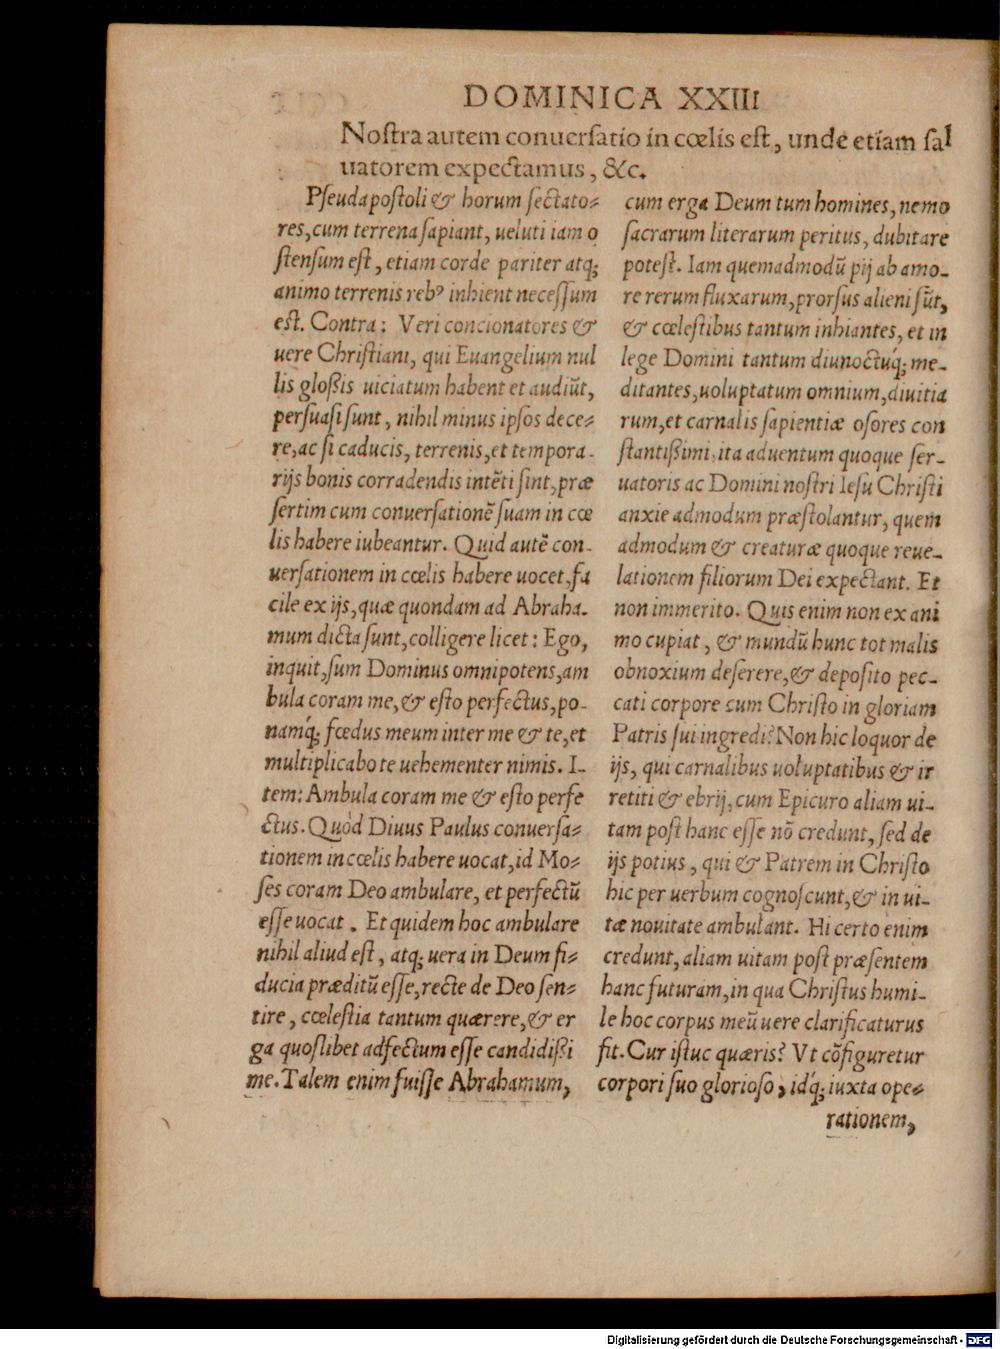 DOMINICA XXIII
Nostra autem conuersatio in cœlis est, unde etiam sal
uatorem expectamus, &c.
Pseudapostoli & horum sectato-
res, cum terrena sapiant, ueluti iam o
stensum est, etiam corde pariter atq;
animo terrenis rebꝰ inhient necessum
est. Contra: Veri concionatores &
uere Christiani, qui Euangelium nul
lis gloßis uiciatum habent et audiũt,
persuasi sunt, nihil minus ipsos dece-
re, ac si caducis, terrenis, et tempora-
rijs bonis corradendis intẽti sint, præ
sertim cum conuersationẽ suam in cœ
lis habere iubeantur. Quid autẽ con-
uersationem in cœlis habere uocet, fa
cile ex ijs, quæ quondam ad Abraha-
mum dicta sunt, colligere licet: Ego,
inquit, sum Dominus omnipotens, am
bula coram me, & esto perfectus, po-
namq́; fœdus meum inter me & te, et
multiplicabo te uehementer nimis. I-
tem: Ambula coram me & esto perfe
ctus. Quòd Diuus Paulus conuersa-
tionem in cœlis habere uocat, id Mo-
ses coram Deo ambulare, et perfectũ
esse uocat. Et quidem hoc ambulare
nihil aliud est, atq; uera in Deum fi-
ducia præditũ esse, recte de Deo sen-
tire, cœlestia tantum quærere, & er
ga quoslibet adfectum esse candidißi
me. Talem enim fuisse Abrahamum,
cum erga Deum tum homines, nemo
sacrarum literarum peritus, dubitare
potest. Iam quemadmodũ pij ab amo-
re rerum fluxarum, prorsus alieni sũt,
& cœlestibus tantum inhiantes, et in
lege Domini tantum diunoctuq́; me-
ditantes, uoluptatum omnium, diuitia
rum, et carnalis sapientiæ osores con
stantißimi, ita aduentum quoque ser-
uatoris ac Domini nostri Iesu Christi
anxie admodum præstolantur, quem
admodum & creaturæ quoque reue-
lationem filiorum Dei expectant. Et
non immerito. Quis enim non ex ani
mo cupiat, & mundũ hunc tot malis
obnoxium deserere, & deposito pec-
cati corpore cum Christo in gloriam
Patris sui ingredi? Non hic loquor de
ijs, qui carnalibus uoluptatibus & ir
retiti & ebrij, cum Epicuro aliam ui-
tam post hanc esse nõ credunt, sed de
ijs potius, qui & Patrem in Christo
hic per uerbum cognoscunt, & in ui-
tæ nouitate ambulant. Hi certo enim
credunt, aliam uitam post præsentem
hanc futuram, in qua Christus humi-
le hoc corpus meũ uere clarificaturus
sit. Cur istuc quæris? Vt cõfiguretur
corpori suo glorioso, idq́; iuxta ope-
rationem,
Digitalisierung gefördert durch die Deutsche Forschungsgemeinschaft - DFG